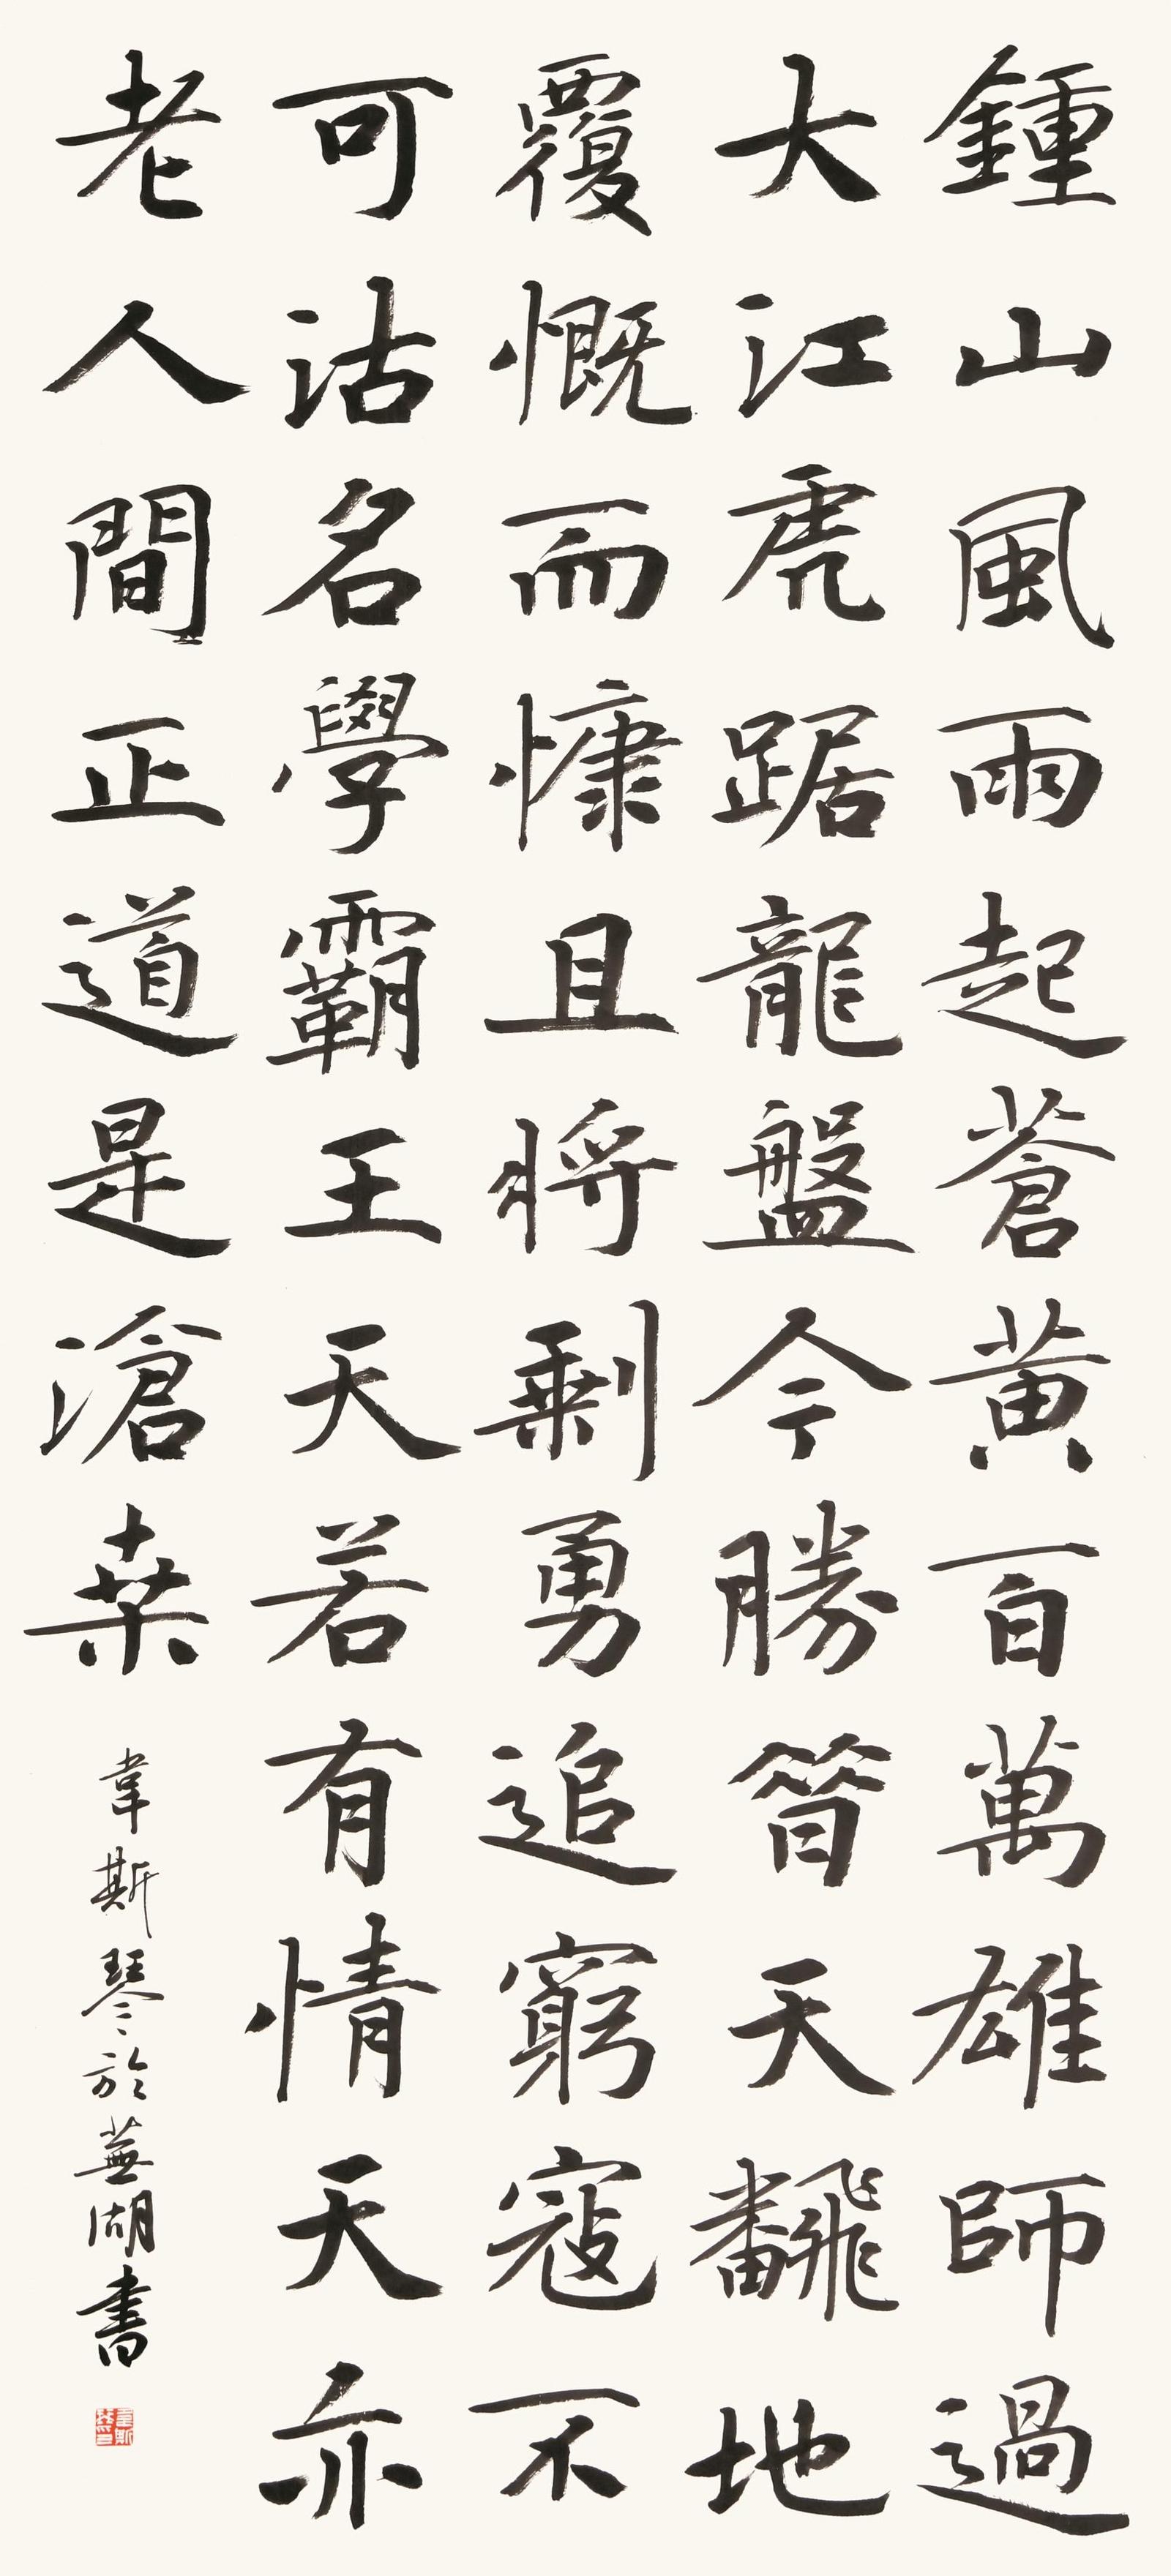 鍾山風雨起蒼黃百萬雄師過
大江虎踞龍盤今勝昔天飜地
覆慨而慷且將剩勇追窮寇不
可沽名學霸王天若有情天亦
老人間正道是滄桒
韋斯琴於蕪湖書